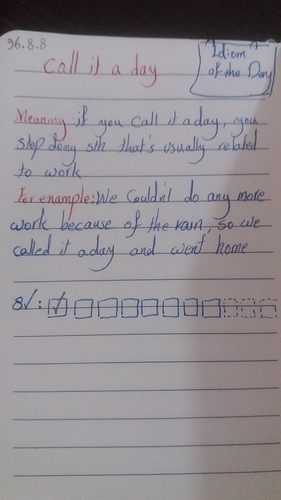 96.8.8
Idiom
of the Day
Call it a day
Meaning: if you call it a day, you
stop doing sth that's usually related
to work
For example: We Couldn't do any more
work because of the rain, so we
called it a day and went home
8✓: